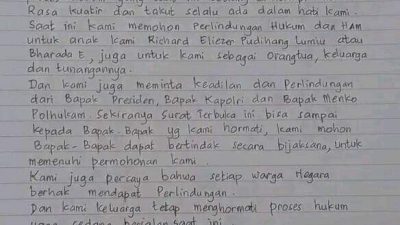 Rasa kuatir dan takut selalu ada dalam hati kami.
Saat ini kami memohon Perlindungan Hukum dan HAM
untuk anak kami Richard Eliezer Pudihang Lumiu atau
Bharada E, juga untuk kami sebagai Orangtua, keluarga
dan tunangannya.
Dan kami juga meminta keadilan dan Perlindungan
dari Bapak Presiden, Bapak Kapolri dan Bapak Menko
Polhukam. Sekiranya Surat Terbuka ini bisa sampai
kepada Bapak-Bapak yg kami hormati, kami mohon
Bapak-Bapak dapat bertindak secara bijaksana, untuk
memenuhi permohonan kami.
Kami juga percaya bahwa setiap warga Negara
berhak mendapat Perlindungan.
Dan kami keluarga tetap menghormati proses hukum
yang sedang berjalan saat ini.